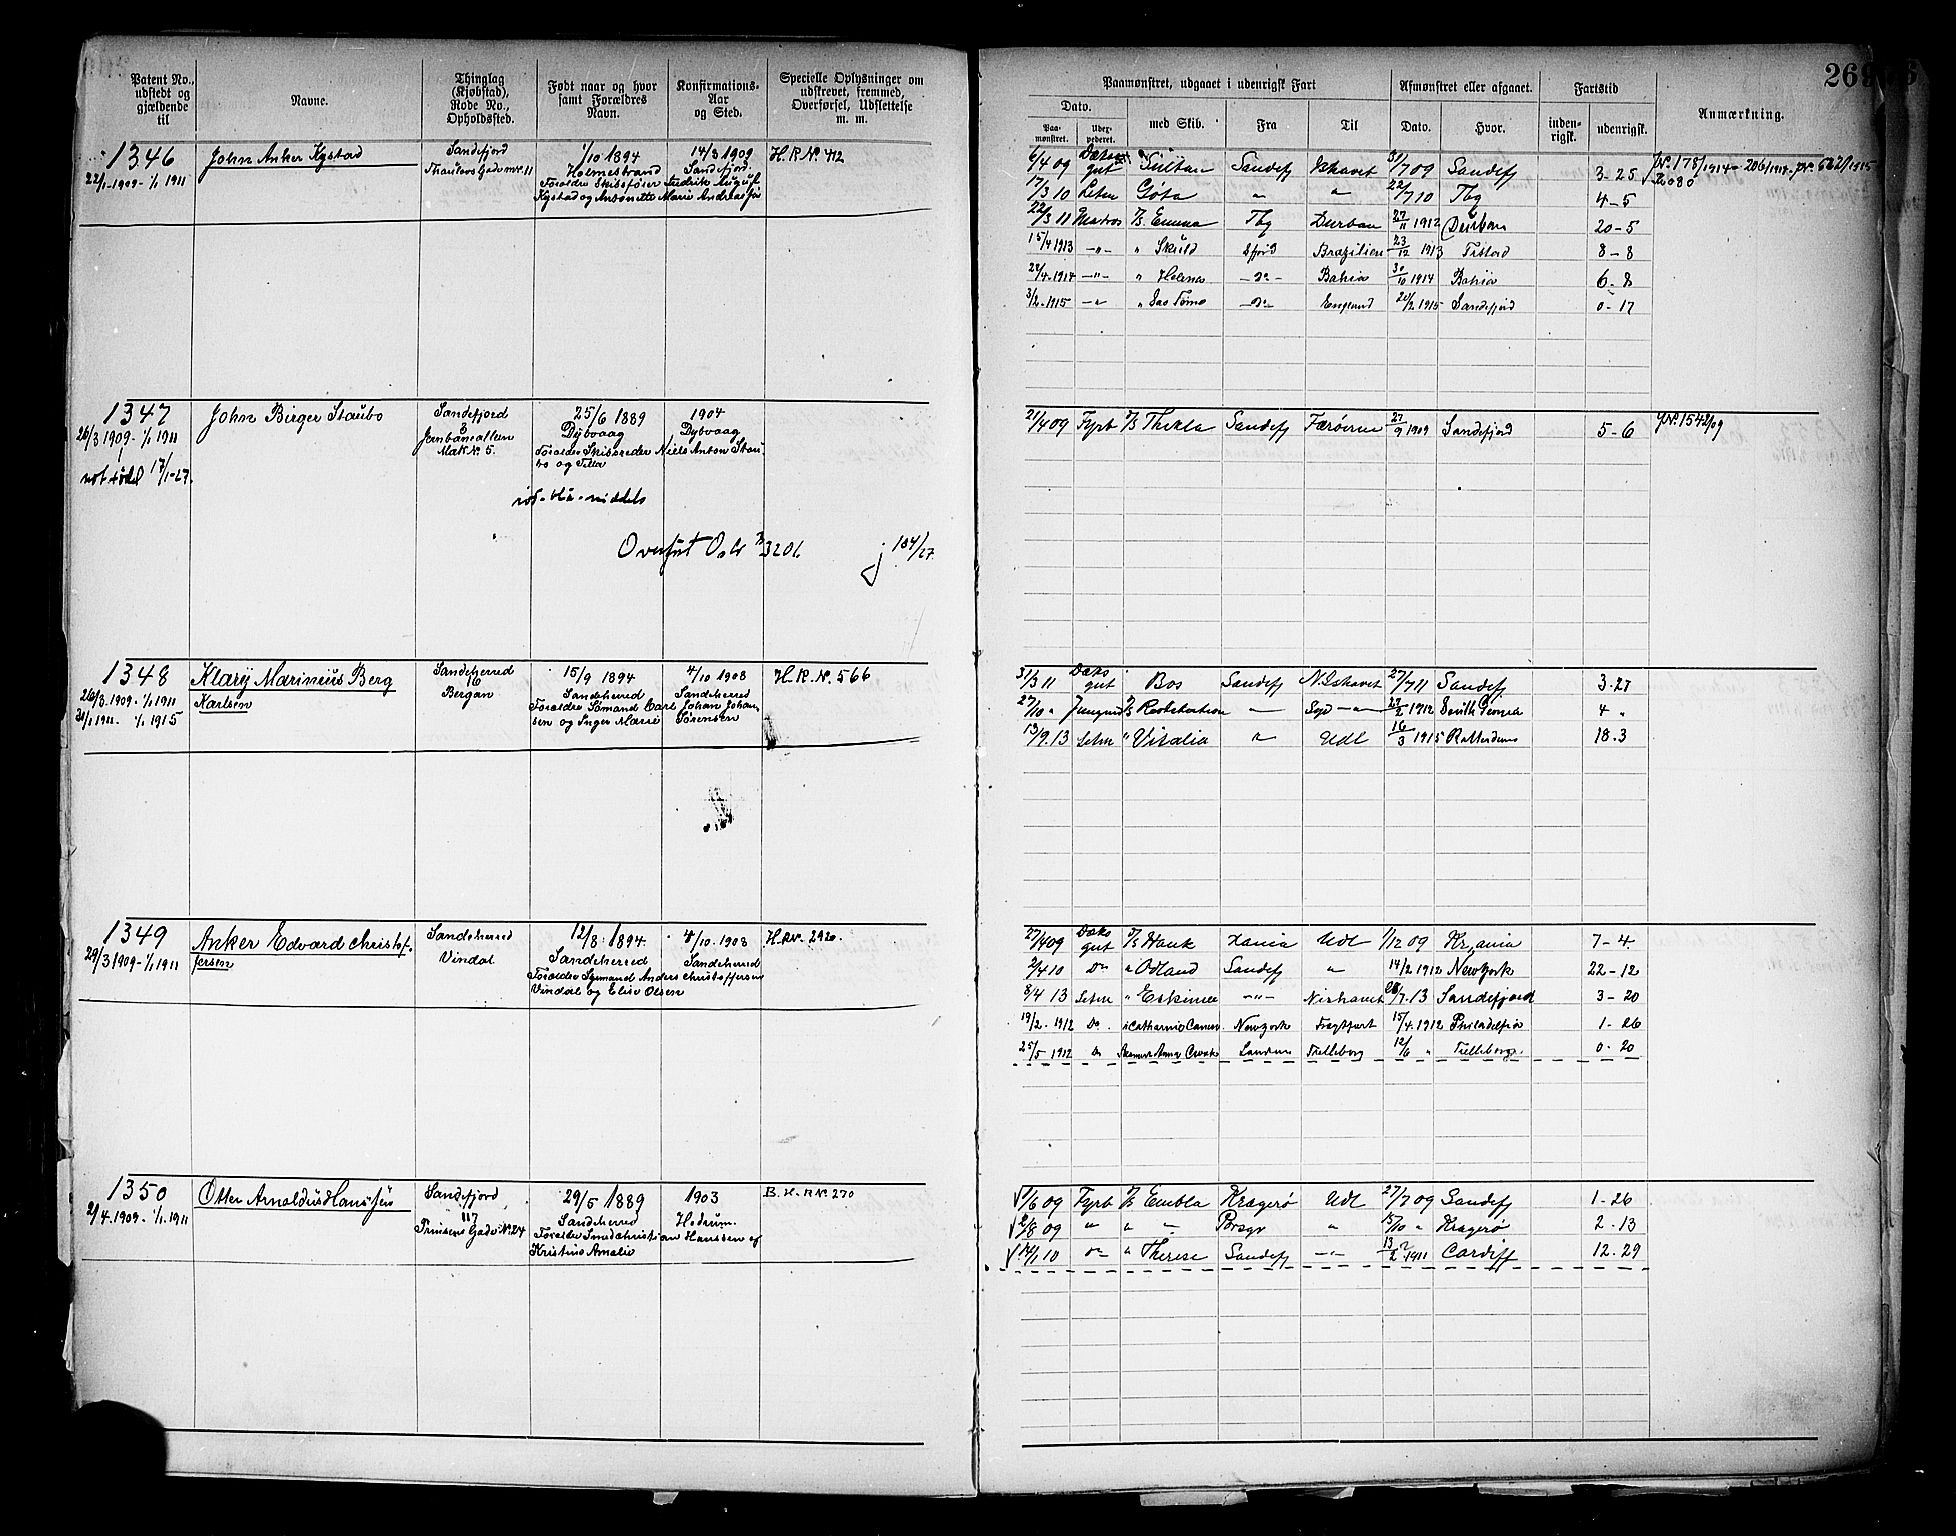 268
Patent No., udstedt og gjældende til
Navne.
Thinglag (Kjøbstad), Rode No., Opholdssted.
Født naar og hvor samt Forældres Navn.
Konfirmations- Aar og Sted.
Specielle Oplysninger om udskrevet, fremmed, Overførsel, Udslettelse m. m.
Paamønstret, udgaaet i udenrigsk Fart
Afmønstret eller afgaaet.
Fartstid
Anmærkning.
Dato.
Paa- mønstret.
med Skib.
Fra
Til
Dato.
Hvor.
inden- rigsk.
udenrigsk.
1346
John Anker Kystad
Sandefjord
1/10 1894
14/3 1909
H.R.N. 412
22/1-1909-1/1 1911
Thaulows Gade
Holmestrand
Sandefjord
Forældre Skibsfører Fredrik August
Kystad og Antonette Marie Andreas
6/4 09 Sultan Sandefj Ishavet 31/7 09 Sandefj 3-25
17/3 10 Letm Göta " " 22/7 10 Tbg 4-5
22/3 11 Matros Emma Tbg Durban 27/11 1912 Durban 20-5
15/4 1913 -"- " Skuld Sfjord Brazilien 23/12 1913 8-8
-"- " Helenes -"- Bahia 30/10 1914 Bahia 6-8
3/2-1915 -" " Sao Tome England 1915 Sandefjord 0-17
1347
John Birger Staubo
Sandefjord
25/6 1889
1904
26/3 1909-1/1 1911
3
Dybvaag
Dybvaag
Matr N. 5.
Forældre Skibsreder Niels Anton Stau-
bo og
17/1-27.
3206
j 104/27
21/4 09 Fyrb Thekla Sandefj Færøerne 27/9 1909 Sandefjord 5-6 1542/09
1348
Klary Marinius Berg
Karlsen
Sandeherred
15/9 1894
4/10 1908
H.R.N. 566
26/3-1909-1/1 1911
16
Sandeherred
Sandeherred
31/1 1911- 1/1 1915
Bergan
Forældre Sømand Carl Johan Johan-
sen og Inger Marie Sørensen
31/3 11 Bos Sandefj N. Ishavet 27/7 11 Sandefj 3-27
27/10 " " Syd -"- 27/2 1912 South Georgia 4 "
13/9.13 Letm " Vitalia " Udl 16/3 1915 Rotterdam 18.3
1349
Anker Edvard Christof-
fersen
Sandeherred
12/8 1894
4/10. 1908
H.R.N. 2926.
29/3 1909-1/1 1911
Vindal
Sandeherred
Sandeherred
Forældre Sømand Anders Christoffersen
Vindal og Elise Olsen
27/4 09 Hauk Xania Udl 1/12 09 Kr.ania 7-4
2/4 10 Do " Odland Sandefj " 14/2 1912 New York 22-12
8/4 13 Letm " Eskimo -"- Nishavet 28/7.13 Sandefjord 3-20
19/2-1912 Do New York Fragtfart 15/4.1912 Philadelphia 1-26
25/5 1912 Do Trelleborg 12/6 " Trelleborg. 0-20
1350
Otter Arnoldus Hanssen
Sandefjord
29/5 1889
1903
B.H.R.N. 270
2/4.1909-1/1.1911
117
Sandeherred
Hedrum.
Prinsens Gade N. 24
Forældre Smed Christian Hanssen og
Kristine Amalie
1/6 09 Fyrb Embla Kragerø Udl 27/7 09 Sandefj 1-26
2/8 09 " " " Porsgr " 15/10 " Kragerø 2-13
14/1 10 Do " Therese Sandefj -"- 13/2 1911 Cardiff 12-29